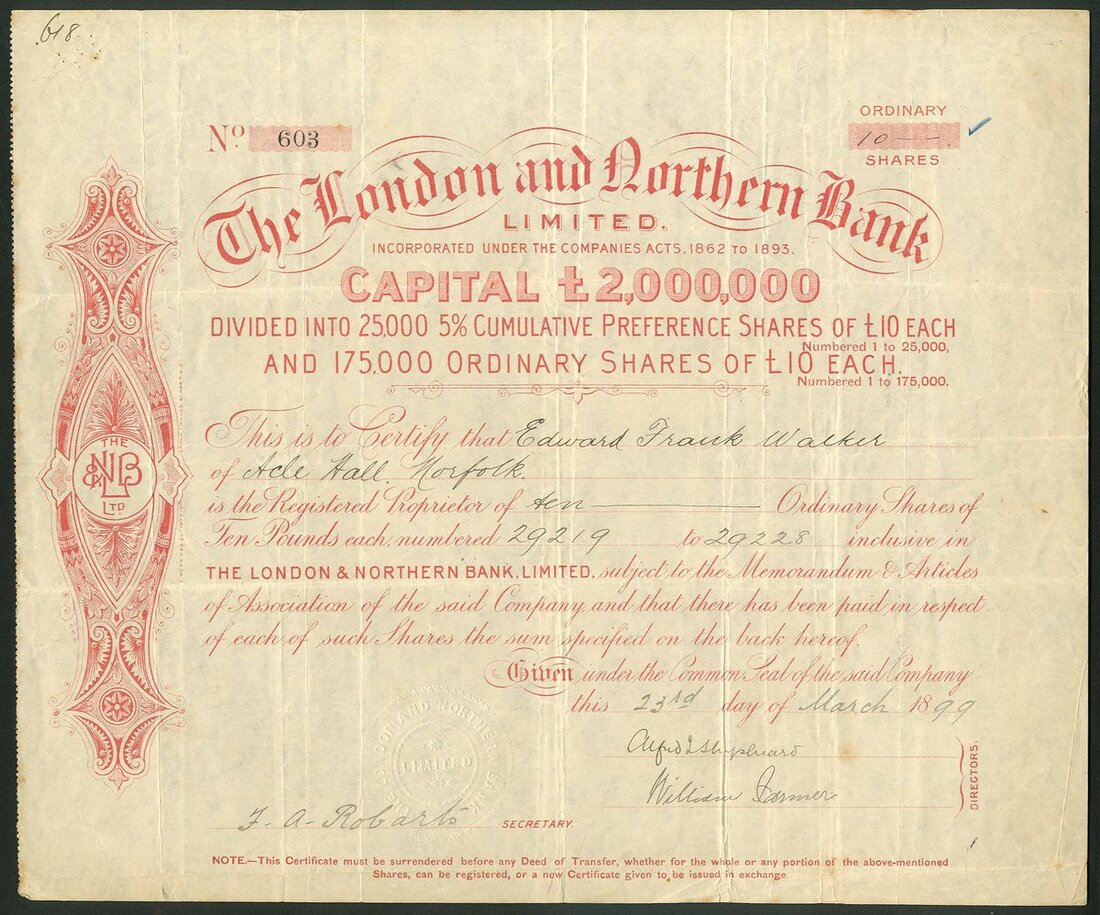 618.
No 603
ORDINARY
10 —
SHARES
The London and Northern Bank
LIMITED.
INCORPORATED UNDER THE COMPANIES ACTS, 1862 TO 1893.
CAPITAL £2,000,000
DIVIDED INTO 25,000 5% CUMULATIVE PREFERENCE SHARES OF £10 EACH
Numbered 1 to 25,000,
AND 175,000 ORDINARY SHARES OF £10 EACH.
Numbered 1 to 175,000.
This is to Certify that Edward Frank Walker
of Acle Hall, Norfolk.
is the Registered Proprietor of ten — Ordinary Shares of
Ten Pounds each, numbered 29219 to 29228 inclusive in
THE LONDON & NORTHERN BANK, LIMITED, subject to the Memorandum & Articles
of Association of the said Company, and that there has been paid in respect
of each of such Shares the sum specified on the back hereof.
Given under the Common Seal of the said Company
this 23rd day of March 1899
William Farmer
DIRECTORS.
F. A. Robarts SECRETARY.
THE
L&NB
LTD.
LONDON AND NORTHERN BANK
LIMITED
NOTE.—This Certificate must be surrendered before any Deed of Transfer, whether for the whole or any portion of the above-mentioned
Shares, can be registered, or a new Certificate given to be issued in exchange.